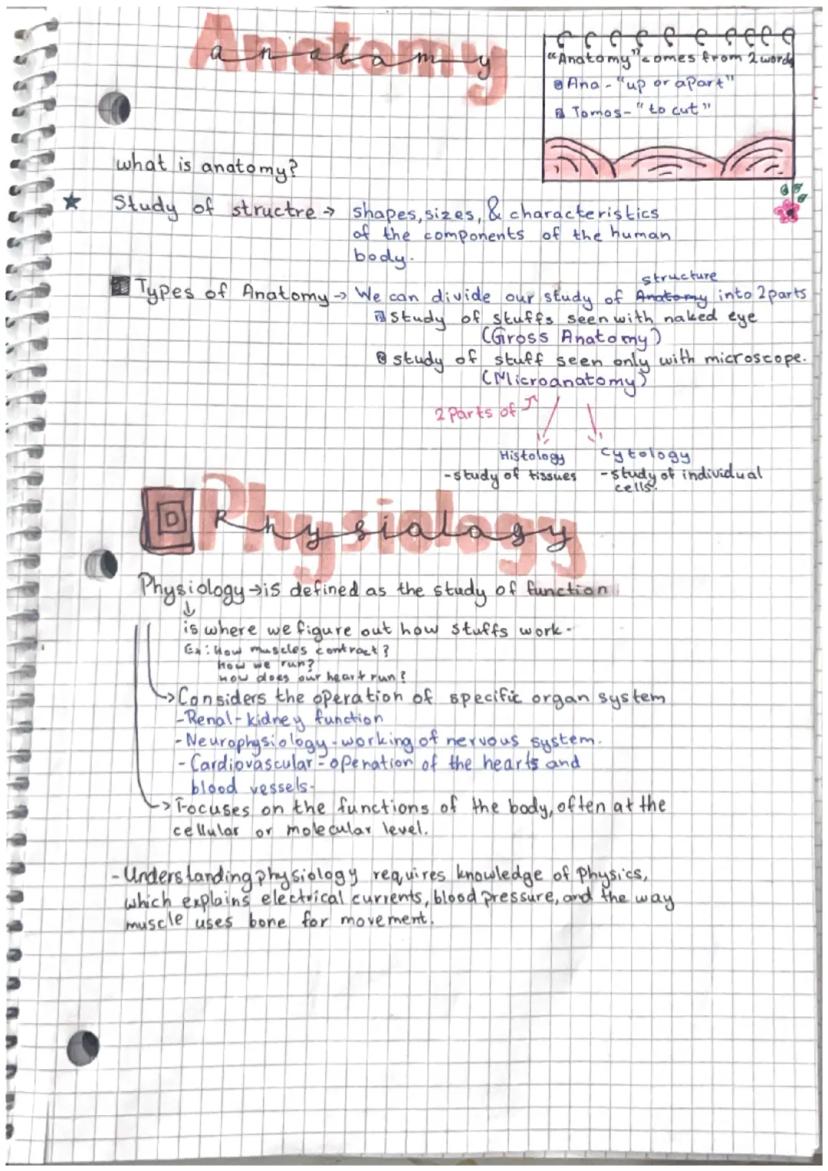 Anatomy
anatamy
"Anatomy" comes from 2 words
Ana - "up or apart"
Tomos - "to cut"
what is anatomy?
Study of structre → shapes, sizes, & characteristics
of the components of the human
body.
structure
Types of Anatomy → We can divide our study of Anatomy into 2 parts
study of stuffs seen with naked eye
(Gross Anatomy)
study of stuff seen only with microscope.
(Microanatomy)
2 Parts of
Histology
- study of tissues
Cytology
- study of individual
cells.
Physiology
Physialagy
Physiology → is defined as the study of function
is where we figure out how stuffs work-
Ex: How muscles contract?
how we run?
how does our heart run?
→ Considers the operation of specific organ system
- Renal - kidney function
- Neurophysiology - working of nervous system.
- Cardiovascular = operation of the hearts and
blood vessels-
→ Focuses on the functions of the body, often at the
cellular or molecular level.
- Understanding physiology requires knowledge of physics,
which explains electrical currents, blood pressure, and the way
muscle uses bone for movement.